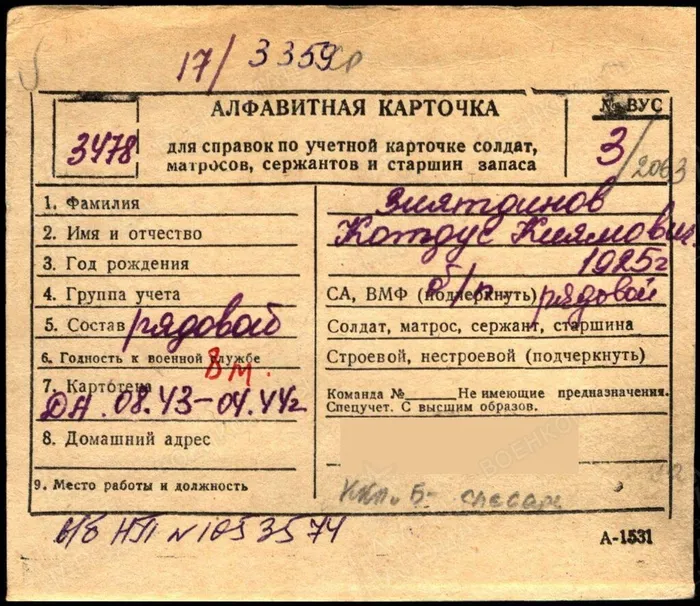 17/3359
АЛФАВИТНАЯ КАРТОЧКА
№ ВУС
3478
для справок по учетной карточке солдат,
матросов, сержантов и старшин запаса
3/2063
1. Фамилия Зиятдинов
2. Имя и отчество Котдус Киямович
3. Год рождения 1925г
4. Группа учета СА, ВМФ (подчеркнуть) б/п рядовой
5. Состав рядовой Солдат, матрос, сержант, старшина
6. Годность к военной службе Строевой, нестроевой (подчеркнуть)
7. Картотека В м. Команда № Не имеющие предназначения.
ДА. 08.43-04.44г Спецучет. С высшим образов.
8. Домашний адрес
9. Место работы и должность слесарь
в/б НП № 1053574
А-1531